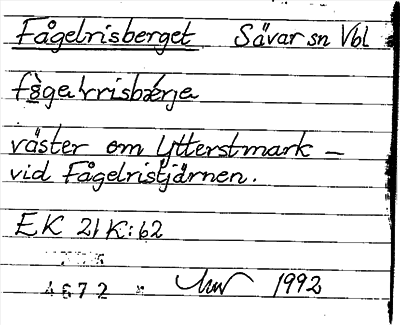 Fågelrisberget Sävar sn Vbl
väster om Ytterstmark –
vid Fågelristjärnen.
EK 21K:62
4672
1992